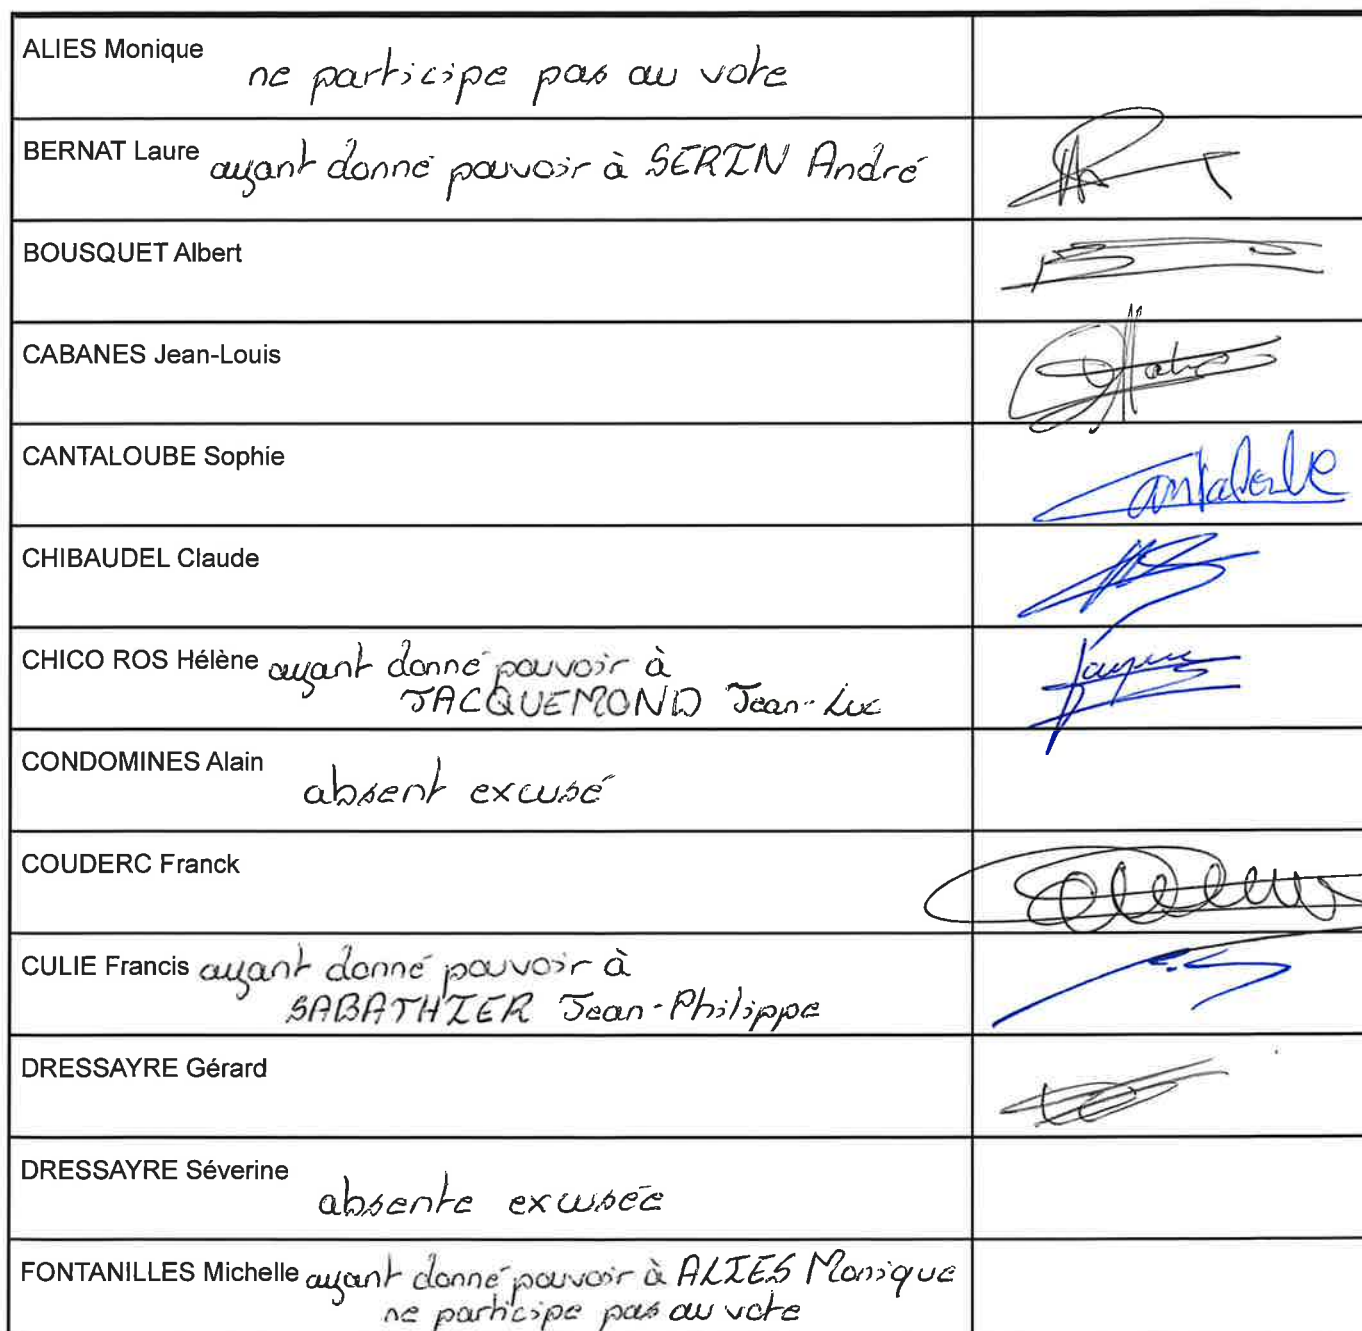 ALIES Monique
ne participe pas au vote
BERNAT Laure ayant donné pouvoir à SERIN André
BOUSQUET Albert
CABANES Jean-Louis
CANTALOUBE Sophie
CHIBAUDEL Claude
CHICO ROS Hélène ayant donné pouvoir à
JACQUEMOND Jean-Luc
CONDOMINES Alain
absent excusé
COUDERC Franck
CULIE Francis ayant donné pouvoir à
SABATHIER Jean-Philippe
DRESSAYRE Gérard
DRESSAYRE Séverine
absente excusée
FONTANILLES Michelle ayant donné pouvoir à ALIES Monique
ne participe pas au vote